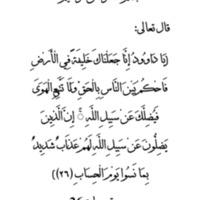 قال تعالى:
﴿يَا دَاوُودُ إِنَّا جَعَلْنَاكَ خَلِيفَةً فِي الْأَرْضِ
فَاحْكُم بَيْنَ النَّاسِ بِالْحَقِّ وَلَا تَتَّبِعِ الْهَوَى
فَيُضِلَّكَ عَن سَبِيلِ اللَّهِ ۚ إِنَّ الَّذِينَ
يَضِلُّونَ عَن سَبِيلِ اللَّهِ لَهُمْ عَذَابٌ شَدِيدٌ
بِمَا نَسُوا يَوْمَ الْحِسَابِ (٢٦)﴾